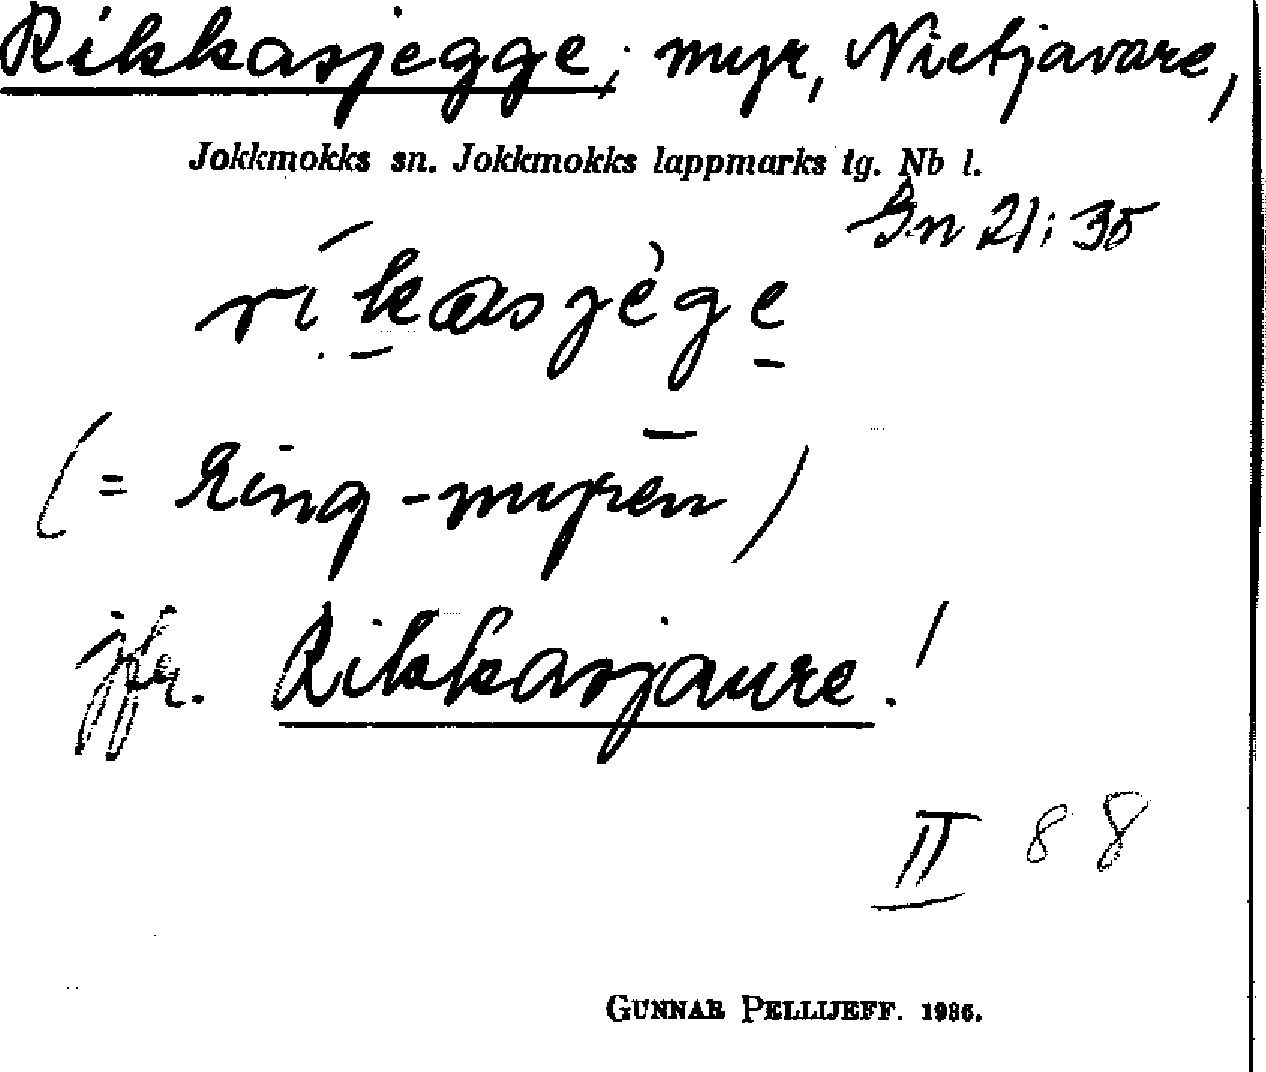 Rikkasjegge, myr, Nietjavare,
Jokkmokks sn. Jokkmokks lappmarks tg. Nb l.
Gn 21: 35
ríkasjège
(= Ring-myren)
jfr. Rikkasjaure!
II 88
GUNNAR PELLIJEFF. 1936.